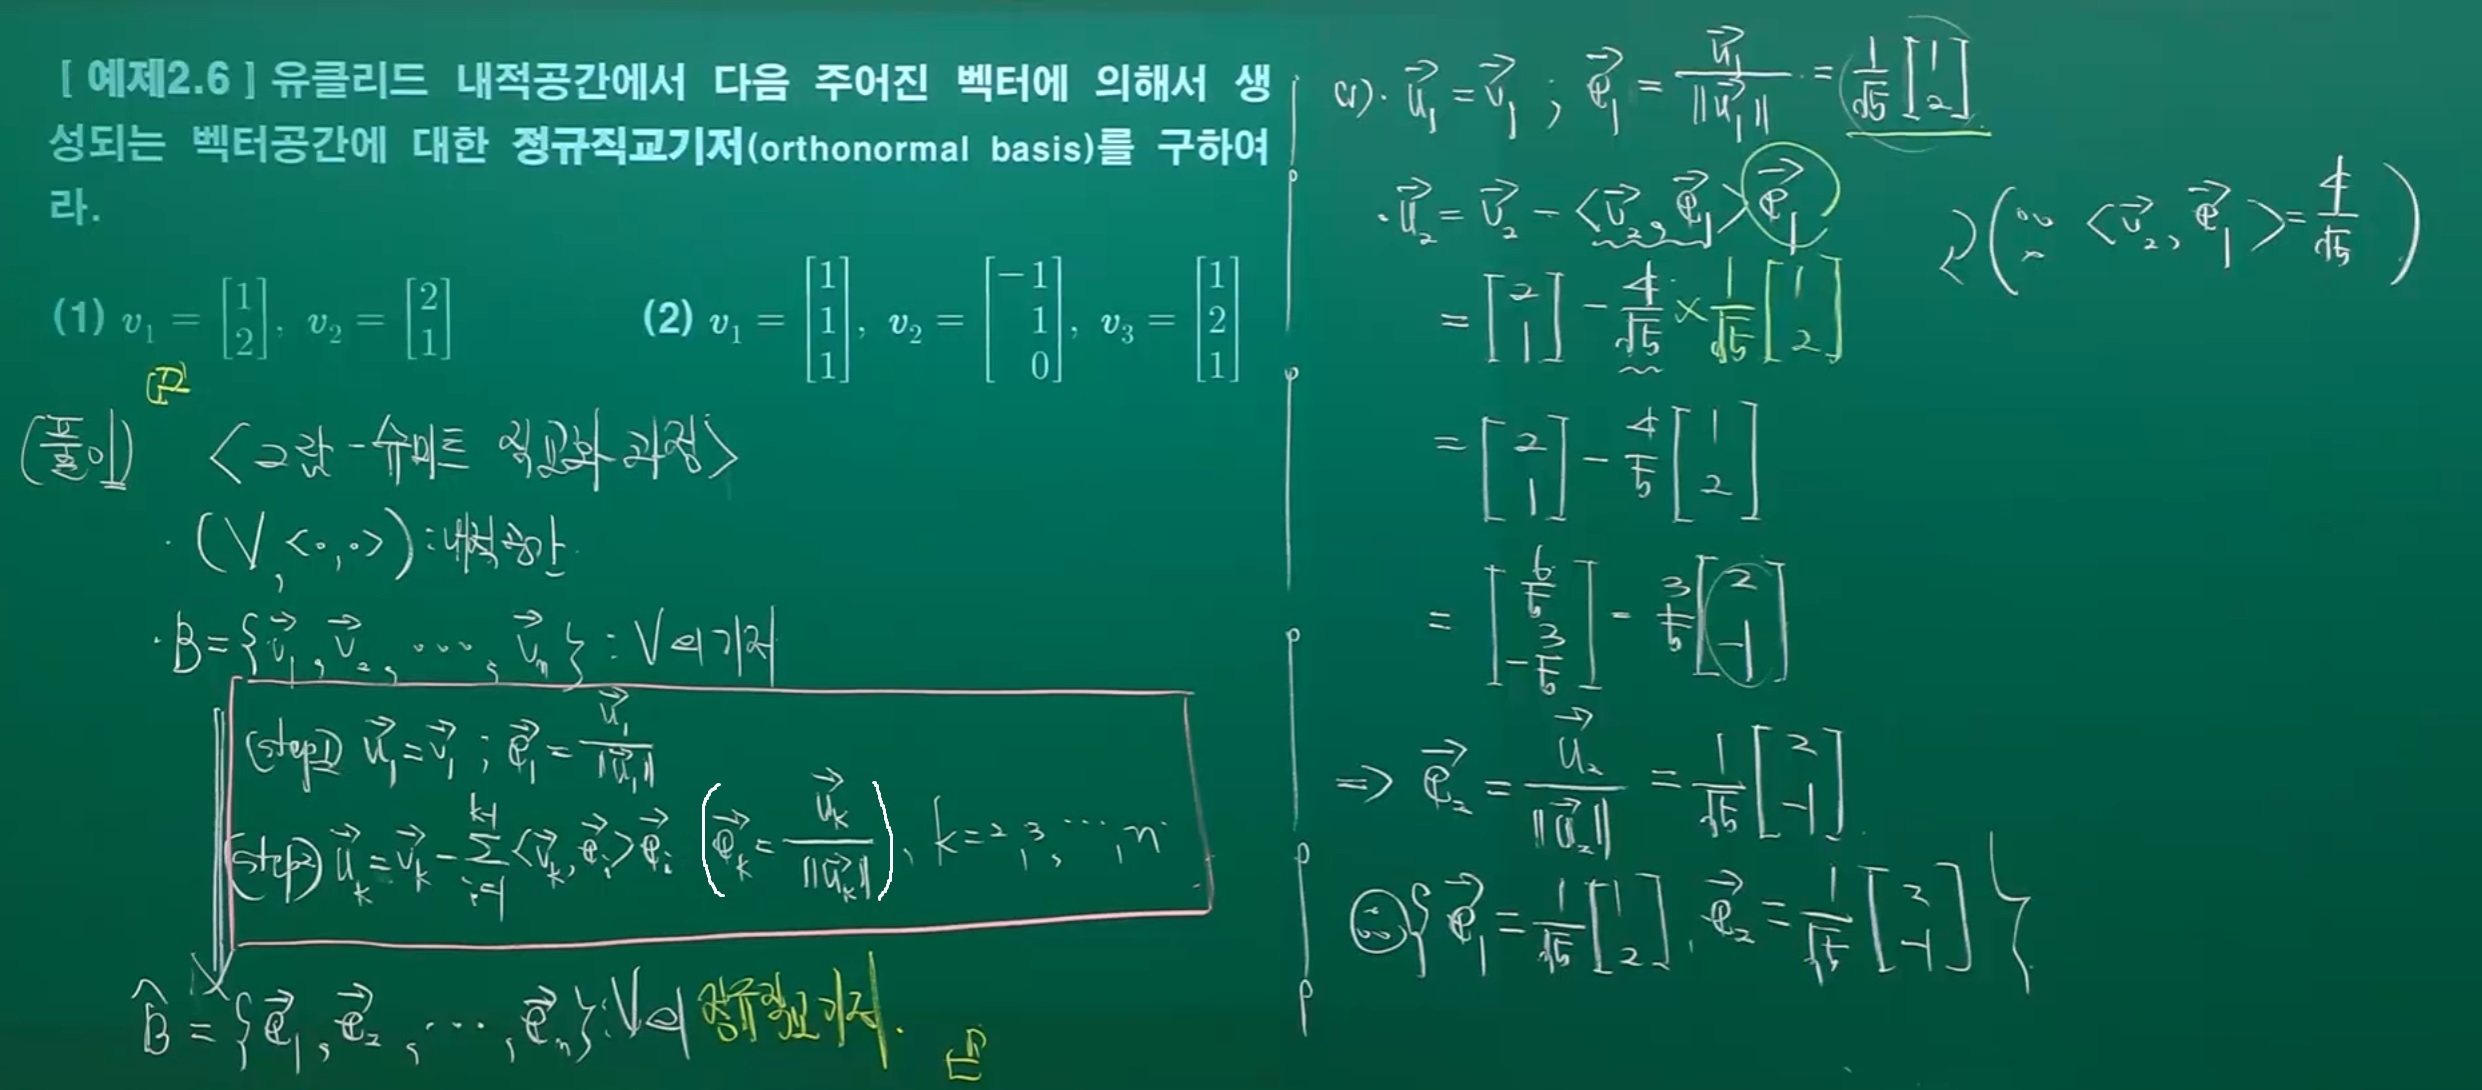 [ 예제2.6 ] 유클리드 내적공간에서 다음 주어진 벡터에 의해서 생
성되는 벡터공간에 대한 정규직교기저(orthonormal basis)를 구하여
라.
(1) v₁ = [1 2], v₂ = [2 1]
(2) v₁ = [1 1 1], v₂ = [-1 1 0], v₃ = [1 2 1]
(풀이) <그람-슈미트 직교화 과정>
· (V, <·,·>) : 내적공간.
· B = {v⃗₁, v⃗₂, ⋯, v⃗ₙ} : V의 기저
(step1) u⃗₁ = v⃗₁ ; e⃗₁ = u⃗₁/‖u⃗₁‖
(step2) u⃗ₖ = v⃗ₖ - Σᵢ₌₁ᵏ⁻¹ <v⃗ₖ, e⃗ᵢ> e⃗ᵢ (e⃗ₖ = u⃗ₖ/‖u⃗ₖ‖), k = 2, 3, ⋯, n
B̂ = {e⃗₁, e⃗₂, ⋯, e⃗ₙ} : V의 정규직교기저.
(1). u⃗₁ = v⃗₁ ; e⃗₁ = u⃗₁/‖u⃗₁‖ = 1/√5 [1 2]
· u⃗₂ = v⃗₂ - <v⃗₂, e⃗₁> e⃗₁ (∵ <v⃗₂, e⃗₁> = 4/√5)
= [2 1] - 4/√5 × 1/√5 [1 2]
= [2 1] - 4/5 [1 2]
= [6/5 -3/5] - 3/5 [2 -1]
⇒ e⃗₂ = u⃗₂/‖u⃗₂‖ = 1/√5 [2 -1]
∴ {e⃗₁ = 1/√5 [1 2], e⃗₂ = 1/√5 [2 -1]}